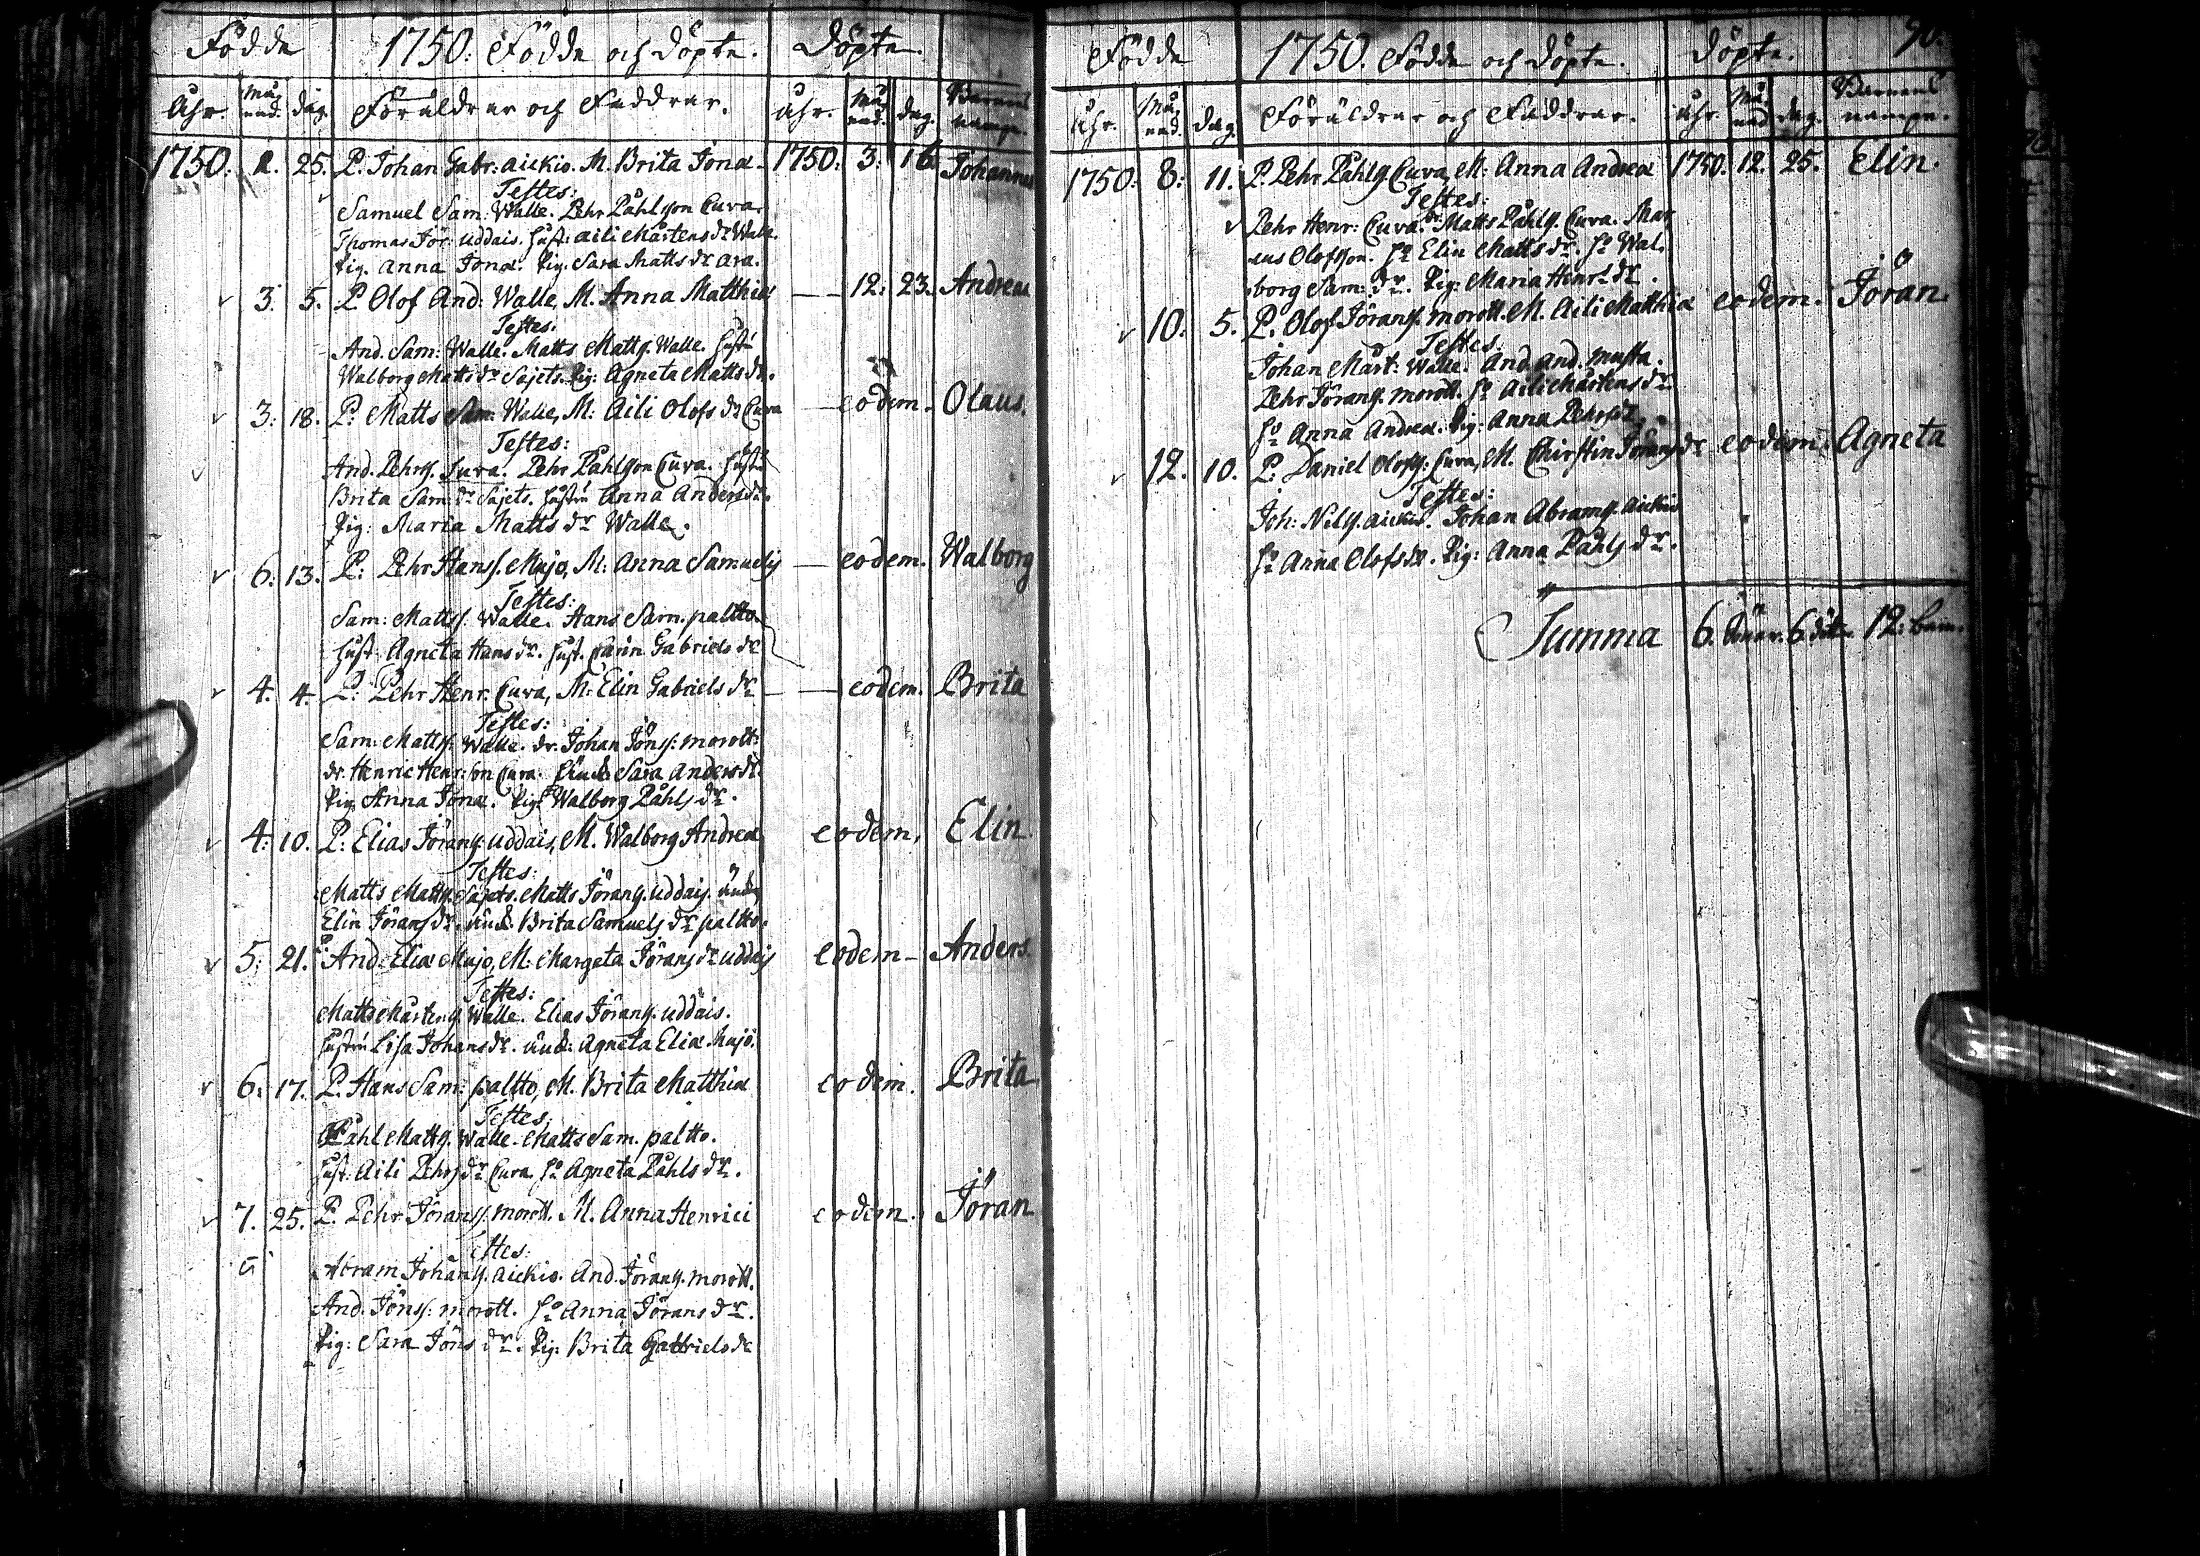 Födde 1750. Födde och Döpte. Döpte.
Åhr. Må-nad. dag. Föräldrar och Faddrar. Åhr. Må-nad. dag. Barnens nampn.
1750. 2. 25. P. Johan Gabr: Aickio. M. Brita Jonæ 1750: 3: 16 Johannes
Testes:
Samuel Sam: Walle. Pehr Påhlsson Cuva.
Thomas Jör: Uddais. Hust: Aili Mårtens dr Walle.
Pig. Anna Jonæ. Pig. Sara Matts dr Ara.
3. 5. P. Olof And: Walle, M. Anna Matthiæ 12: 23. Andreas
Testes.
And. Sam: Walle. Matts Matts. Walle. Hustr
Walborg Matts dr Sajets. Pig: Agneta Matts dr.
3: 18. P: Matts Sam: Walle, M: Aili Olofs dr Cuva eodem. Olaus.
Testes:
And. Pehrs. Juva. Pehr Påhlsson Cuva. Hustr
Brita Sam: dr Sajets. Hustru Anna Anders dr.
Pig: Maria Matts dr Walle.
6: 13. P: Pehr Hans. Mujo, M: Anna Samuelis eodem. Walborg
Testes:
Sam: Matts. Walle. Hans Sam. paltto.
Hust: Agneta Hans dr. Hust. Carin Gabriels dr
4. 4. P: Pehr Henr: Cuva, M: Elin Gabriels dr eodem. Brita
Testes:
Sam: Matts: Walle. dr. Johan Jöns: morott:
dr. Henric Henr:son Cuva. Sara Anders dr.
Pig. Anna Jonæ. Pig: Walborg Påhls dr.
4: 10. P: Elias Jörans: Uddais, M. Walborg Andreæ eodem. Elin
Testes:
Matts Matts. Sajets. Matts Jörans. Uddais.
Elin Jörans dr. Brita Samuels dr paltto.
5: 21. P: And: Eliæ Mujo, M: Margeta Jörans dr Uddais eodem Anders
Testes:
Matts Mårtens. Walle. Elias Jörans. Uddais.
Hustru Lisa Johans dr. Agneta Eliæ Mujo.
6: 17. P. Hans Sam: paltto, M. Brita Matthiæ eodem. Brita
Testes,
Påhl Matts. Walle. Matts Sam. paltto.
Hust: Aili Pehrs dr Cuva. Ho Agneta Påhls dr.
7. 25. P. Pehr Jörans. morott. M. Anna Henrici eodem. Jöran
Testes:
Abram Johans. Aickio. And. Jörans. morott.
And. Jöns: morott. Ho Anna Jörans dr.
Pig: Sara Jöns dr. Pig: Brita Gabriels dr
Födde 1750. Födde och döpte. Döpte. 90.
Åhr. Må-nad. dag. Föräldrar och Faddrar. Åhr. Må-nad. dag. Barnens nampn.
1750. 8: 11. P. Pehr Påhls. Cuva, M: Anna Andreæ 1750. 12. 25. Elin.
Testes:
Pehr Henr: Cuva. Matts Påhls. Cuva. Mar-
cus Olofsson. Ho Elin Matts dr. Ho Wal-
borg Sam: dr. Pig: Maria Henr: dr.
10. 5. P. Olof Jörans. morott. M. Aili Matthiæ eodem. Jöran
Testes.
Johan Mårt: Walle. And. And. Musta.
Pehr Jörans. morott. Ho Aili Mårtens dr
Ho Anna Andreæ. Pig: Anna Pehrs dr
12. 10. P: Daniel Olofs: Cuva, M. Chirstin Jörans dr eodem. Agneta
Testes:
Joh: Nils. Aickio. Johan Abrams. Aickio
Ho Anna Olofs dr. Pig: Anna Påhls dr.
Summa 6. 6 12: barn.